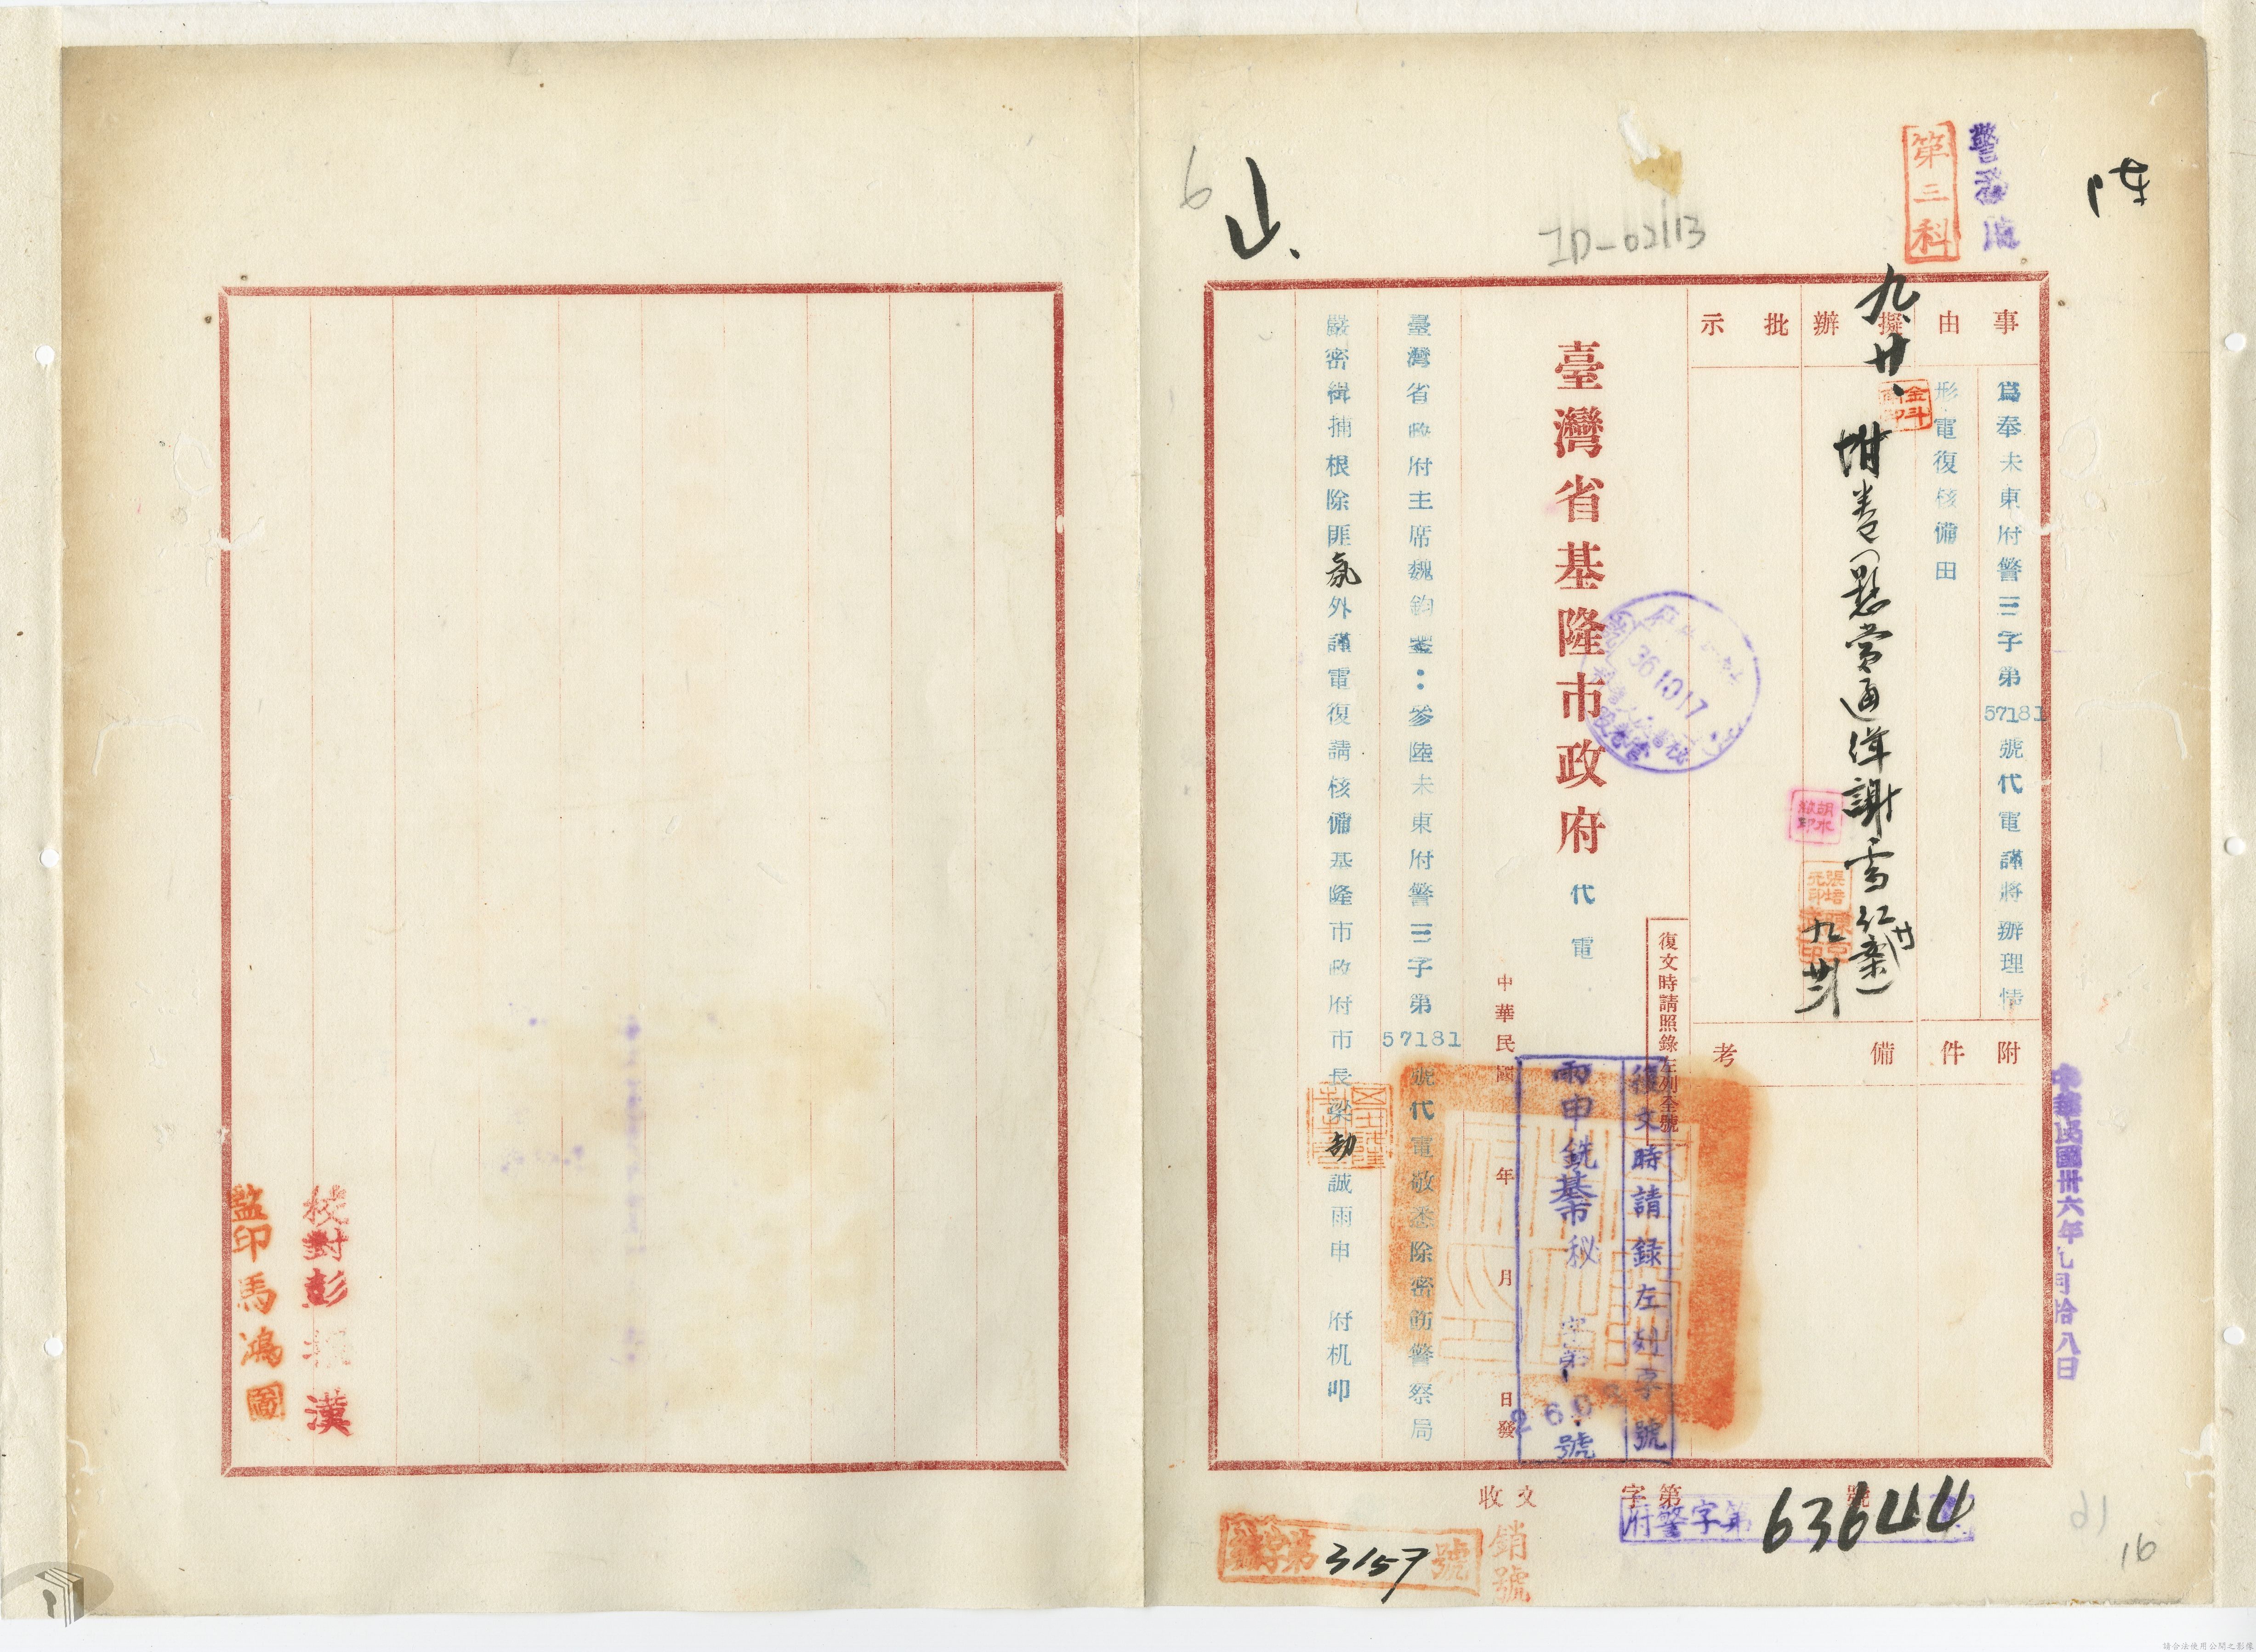 警務處
第三科
ID-02113
6
事由
擬辦
批示
附件
備考
為奉未東府警三字第57181號代電謹將辦理情
形電復核備由
九、廿、
附卷（懸賞通緝謝雪紅案）
臺灣省基隆市政府代電
復文時請照錄左列全號
中華民國 年 月 日發
復文時請錄左列字號
雨申銑基市秘 字第 號
臺灣省政府主席魏鈞鑒：參陸未東附警三字第57181號代電敬悉除密飭警察局
嚴密緝捕根除匪氛外謹電復請核備基隆市政府市長梁劼誠雨申 府机叩
中華民國卅六年九月拾八日
361017
收文 字第 號
府警字第63644號
字第3157號
銷號
16
校對彭 漢
監印馬鴻圖
請合法使用公開之影像